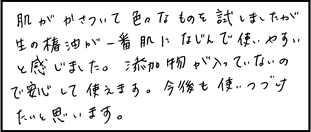 肌ががさついて色々なものを試しましたが
生の椿油が一番肌になじんで使いやすい
と感じました。添加物が入っていないの
で安心して使えます。今後も使いつづけ
たいと思います。